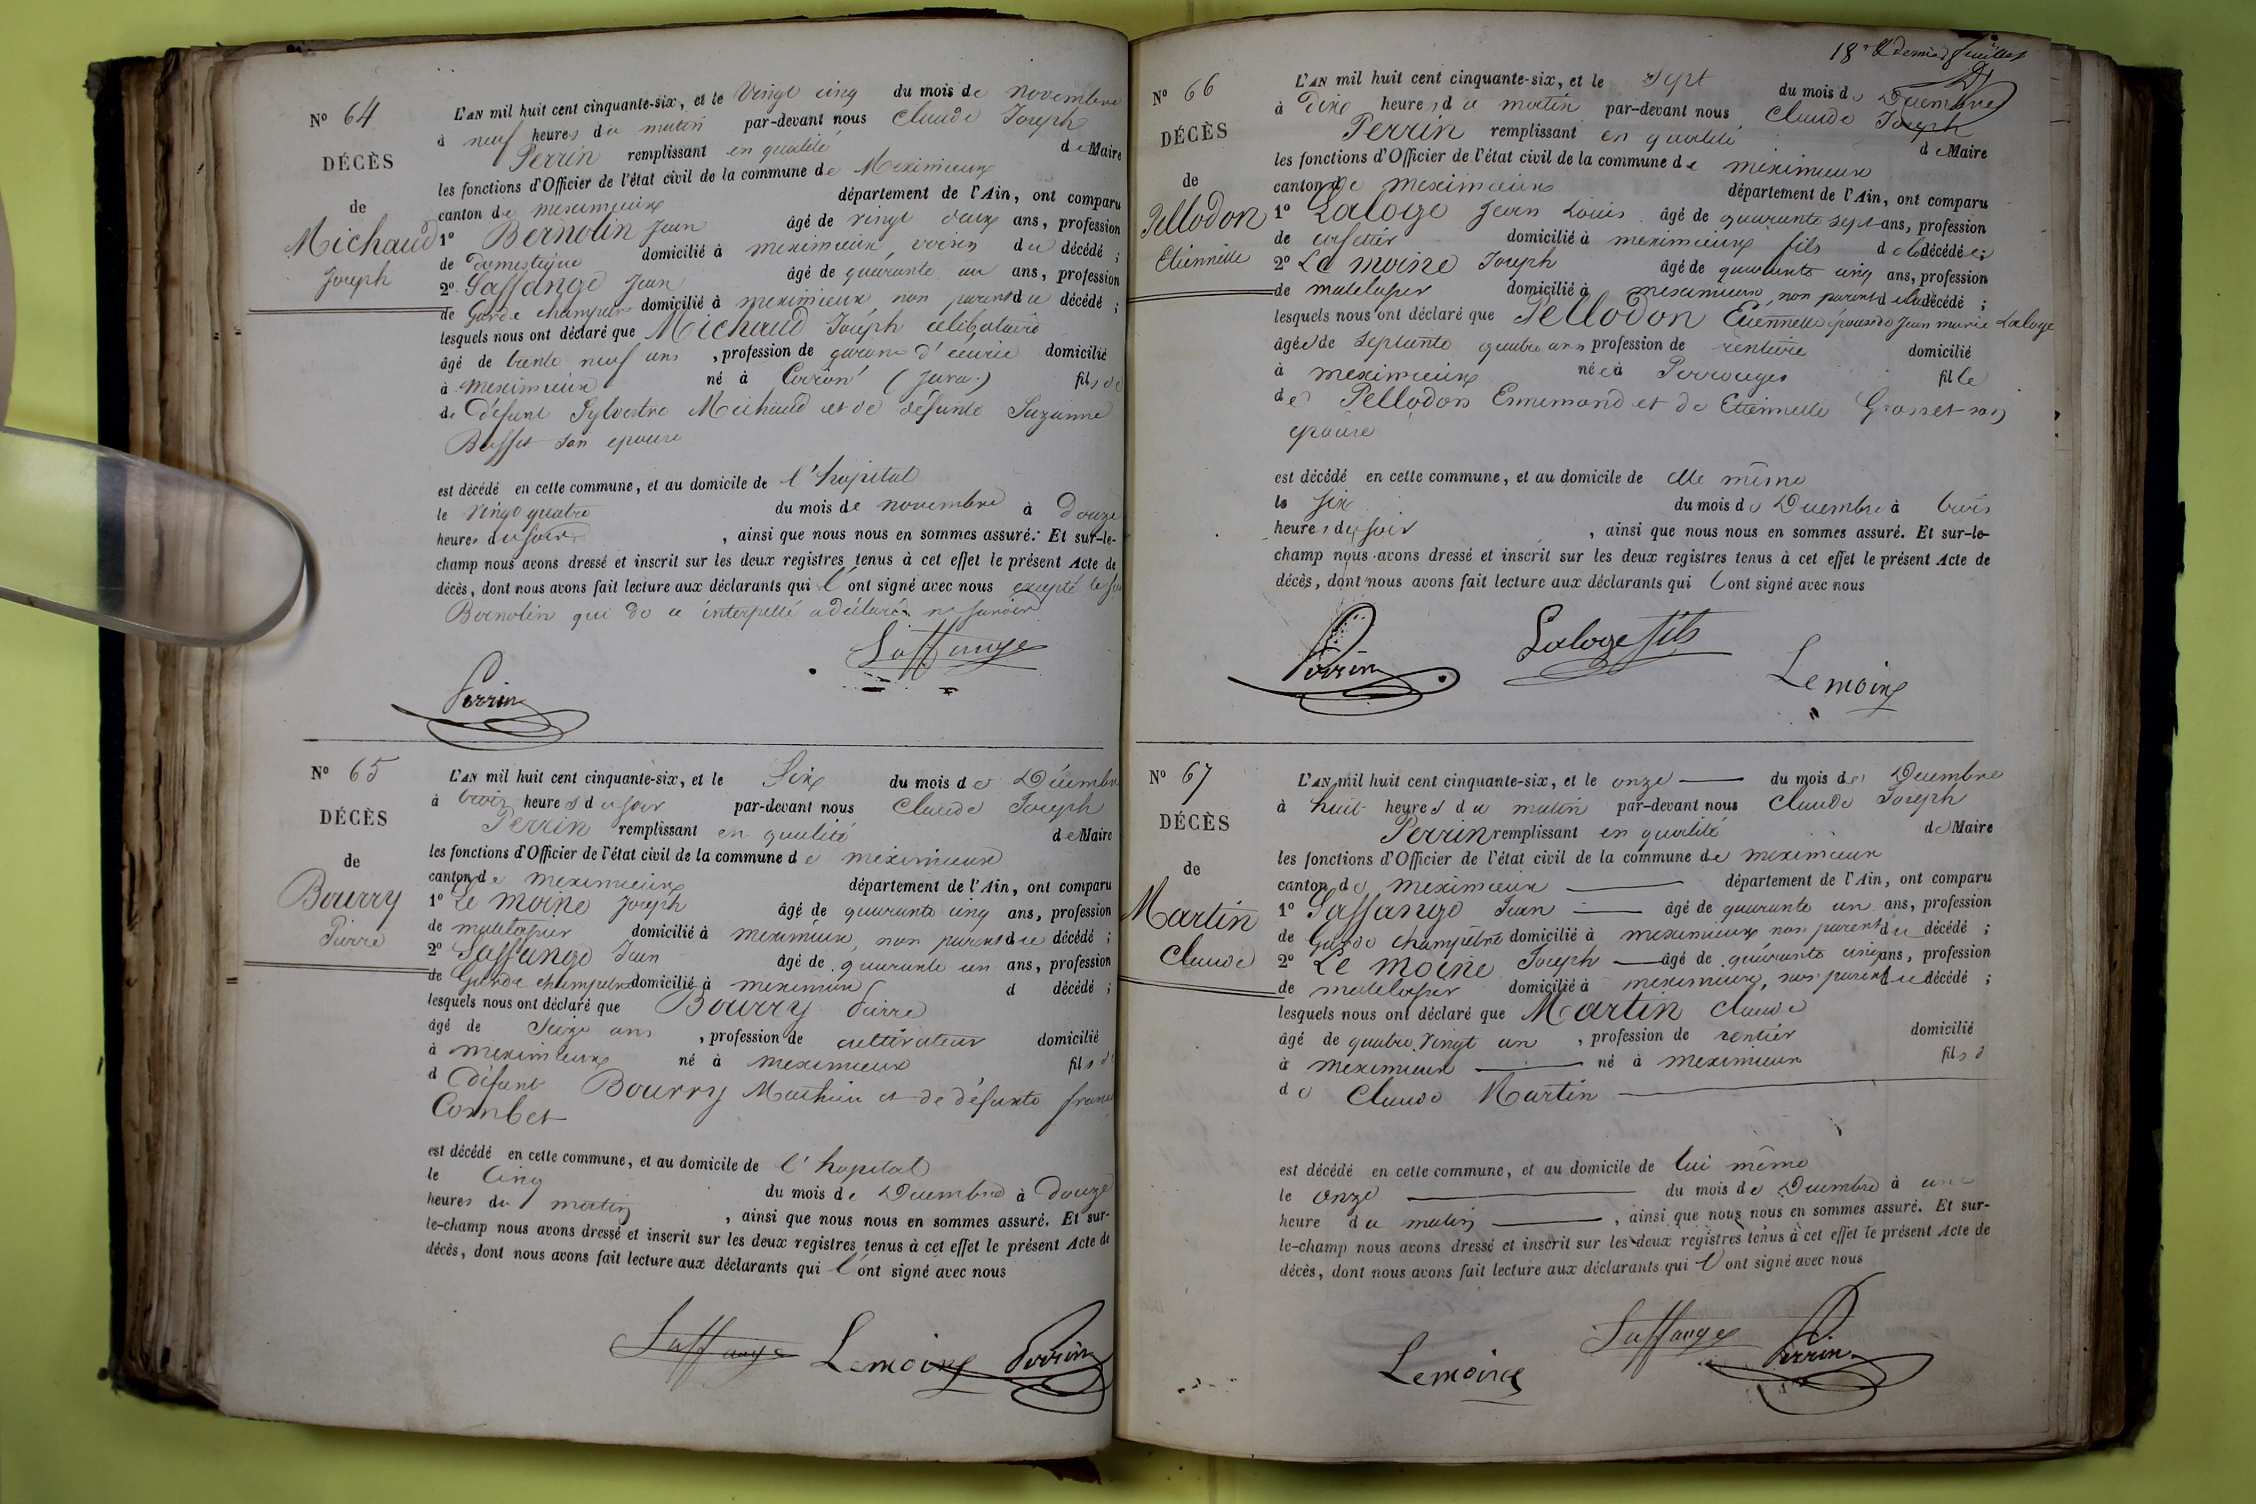 N° 64
DÉCÈS
de
Michaud
Joseph
L'AN mil huit cent cinquante-six, et le Vingt cinq du mois de novembre
à neuf heures du matin par-devant nous Claude Joseph
Perrin remplissant en qualité de Maire
les fonctions d'Officier de l'état civil de la commune de Meximieux
canton de meximieux département de l'Ain, ont comparu
1° Bernolin Jean âgé de vingt deux ans, profession
de domestique domicilié à meximieux, voisin du décédé ;
2° Saffange Jean âgé de quarante un ans, profession
de Garde champetre domicilié à meximieux non parent du décédé ;
lesquels nous ont déclaré que Michaud Joseph celibataire
âgé de trente neuf ans , profession de garçon d'écurie domicilié
à meximieux né à (Jura.) fils de
de Défunt Sylvestre Michaud et de défunte Suzanne
Buffet son epouse
est décédé en cette commune, et au domicile de l'hopital
le Vingt quatre du mois de novembre à Douze
heures du soir , ainsi que nous nous en sommes assuré. Et sur-le-
champ nous avons dressé et inscrit sur les deux registres tenus à cet effet le présent Acte de
décès, dont nous avons fait lecture aux déclarants qui l'ont signé avec nous excepté le sr
Bernolin qui de ce interpellé a déclaré ne savoir
Saffange
Perrin
N° 65
DÉCÈS
de
Bourry
Pierre
L'AN mil huit cent cinquante-six, et le Six du mois de Décembre
à trois heures du soir par-devant nous Claude Joseph
Perrin remplissant en qualité de Maire
les fonctions d'Officier de l'état civil de la commune de meximieux
canton de meximieux département de l'Ain, ont comparu
1° Le Moine Joseph âgé de quarante cinq ans, profession
de matelassier domicilié à meximieux, non parent du décédé ;
2° Saffange Jean âgé de quarante un ans, profession
de Garde champetre domicilié à meximieux d décédé ;
lesquels nous ont déclaré que Bourry Pierre
âgé de Seize ans , profession de cultivateur domicilié
à meximieux né à meximieux fils de
d Défunt Bourry Mathieu et de défunte
Combet
est décédé en cette commune, et au domicile de l'hopital
le Cinq du mois de Décembre à Douze
heures du matin , ainsi que nous nous en sommes assuré. Et sur-
le-champ nous avons dressé et inscrit sur les deux registres tenus à cet effet le présent Acte de
décès, dont nous avons fait lecture aux déclarants qui l'ont signé avec nous
Saffange Lemoine Perrin
18e & dernier feuillet
N° 66
DÉCÈS
de
Pellodon
Etiennette
L'AN mil huit cent cinquante-six, et le Sept du mois de Décembre
à Dix heures du matin par-devant nous Claude Joseph
Perrin remplissant en qualité de Maire
les fonctions d'Officier de l'état civil de la commune de meximieux
canton de meximieux département de l'Ain, ont comparu
1° Laloge Jean Louis âgé de quarante sept ans, profession
de cafetier domicilié à meximieux fils de la décédée ;
2° Le moine Joseph âgé de quarante cinq ans, profession
de matelassier domicilié à meximieux, non parent de la décédé ;
lesquels nous ont déclaré que Pellodon Etiennette épouse de Jean marie Laloge
âgée de septante quatre ans profession de rentière domicilié
à meximieux née à Perrouges fille
de Pellodon Ennemond et de Etiennette Grosset son
epouse
est décédé en cette commune, et au domicile de elle même
le six du mois de Décembre à trois
heures du soir , ainsi que nous nous en sommes assuré. Et sur-le-
champ nous avons dressé et inscrit sur les deux registres tenus à cet effet le présent Acte de
décès, dont nous avons fait lecture aux déclarants qui l'ont signé avec nous
Perrin Laloge fils
Lemoine
N° 67
DÉCÈS
de
Martin
Claude
L'AN mil huit cent cinquante-six, et le onze du mois de Décembre
à huit heures du matin par-devant nous Claude Joseph
Perrin remplissant en qualité de Maire
les fonctions d'Officier de l'état civil de la commune de meximieux
canton de meximieux département de l'Ain, ont comparu
1° Saffange Jean âgé de quarante un ans, profession
de Garde champêtre domicilié à meximieux non parent du décédé ;
2° Le moine Joseph âgé de quarante cinq ans, profession
de matelassier domicilié à meximieux, non parent du décédé ;
lesquels nous ont déclaré que Martin Claude
âgé de quatre vingt un , profession de rentier domicilié
à meximieux né à meximieux fils d
de Claude Martin
est décédé en cette commune, et au domicile de lui même
le onze du mois de Décembre à une
heure du matin , ainsi que nous nous en sommes assuré. Et sur-
le-champ nous avons dressé et inscrit sur les deux registres tenus à cet effet le présent Acte de
décès, dont nous avons fait lecture aux déclarants qui l'ont signé avec nous
Saffange Perrin
Lemoine